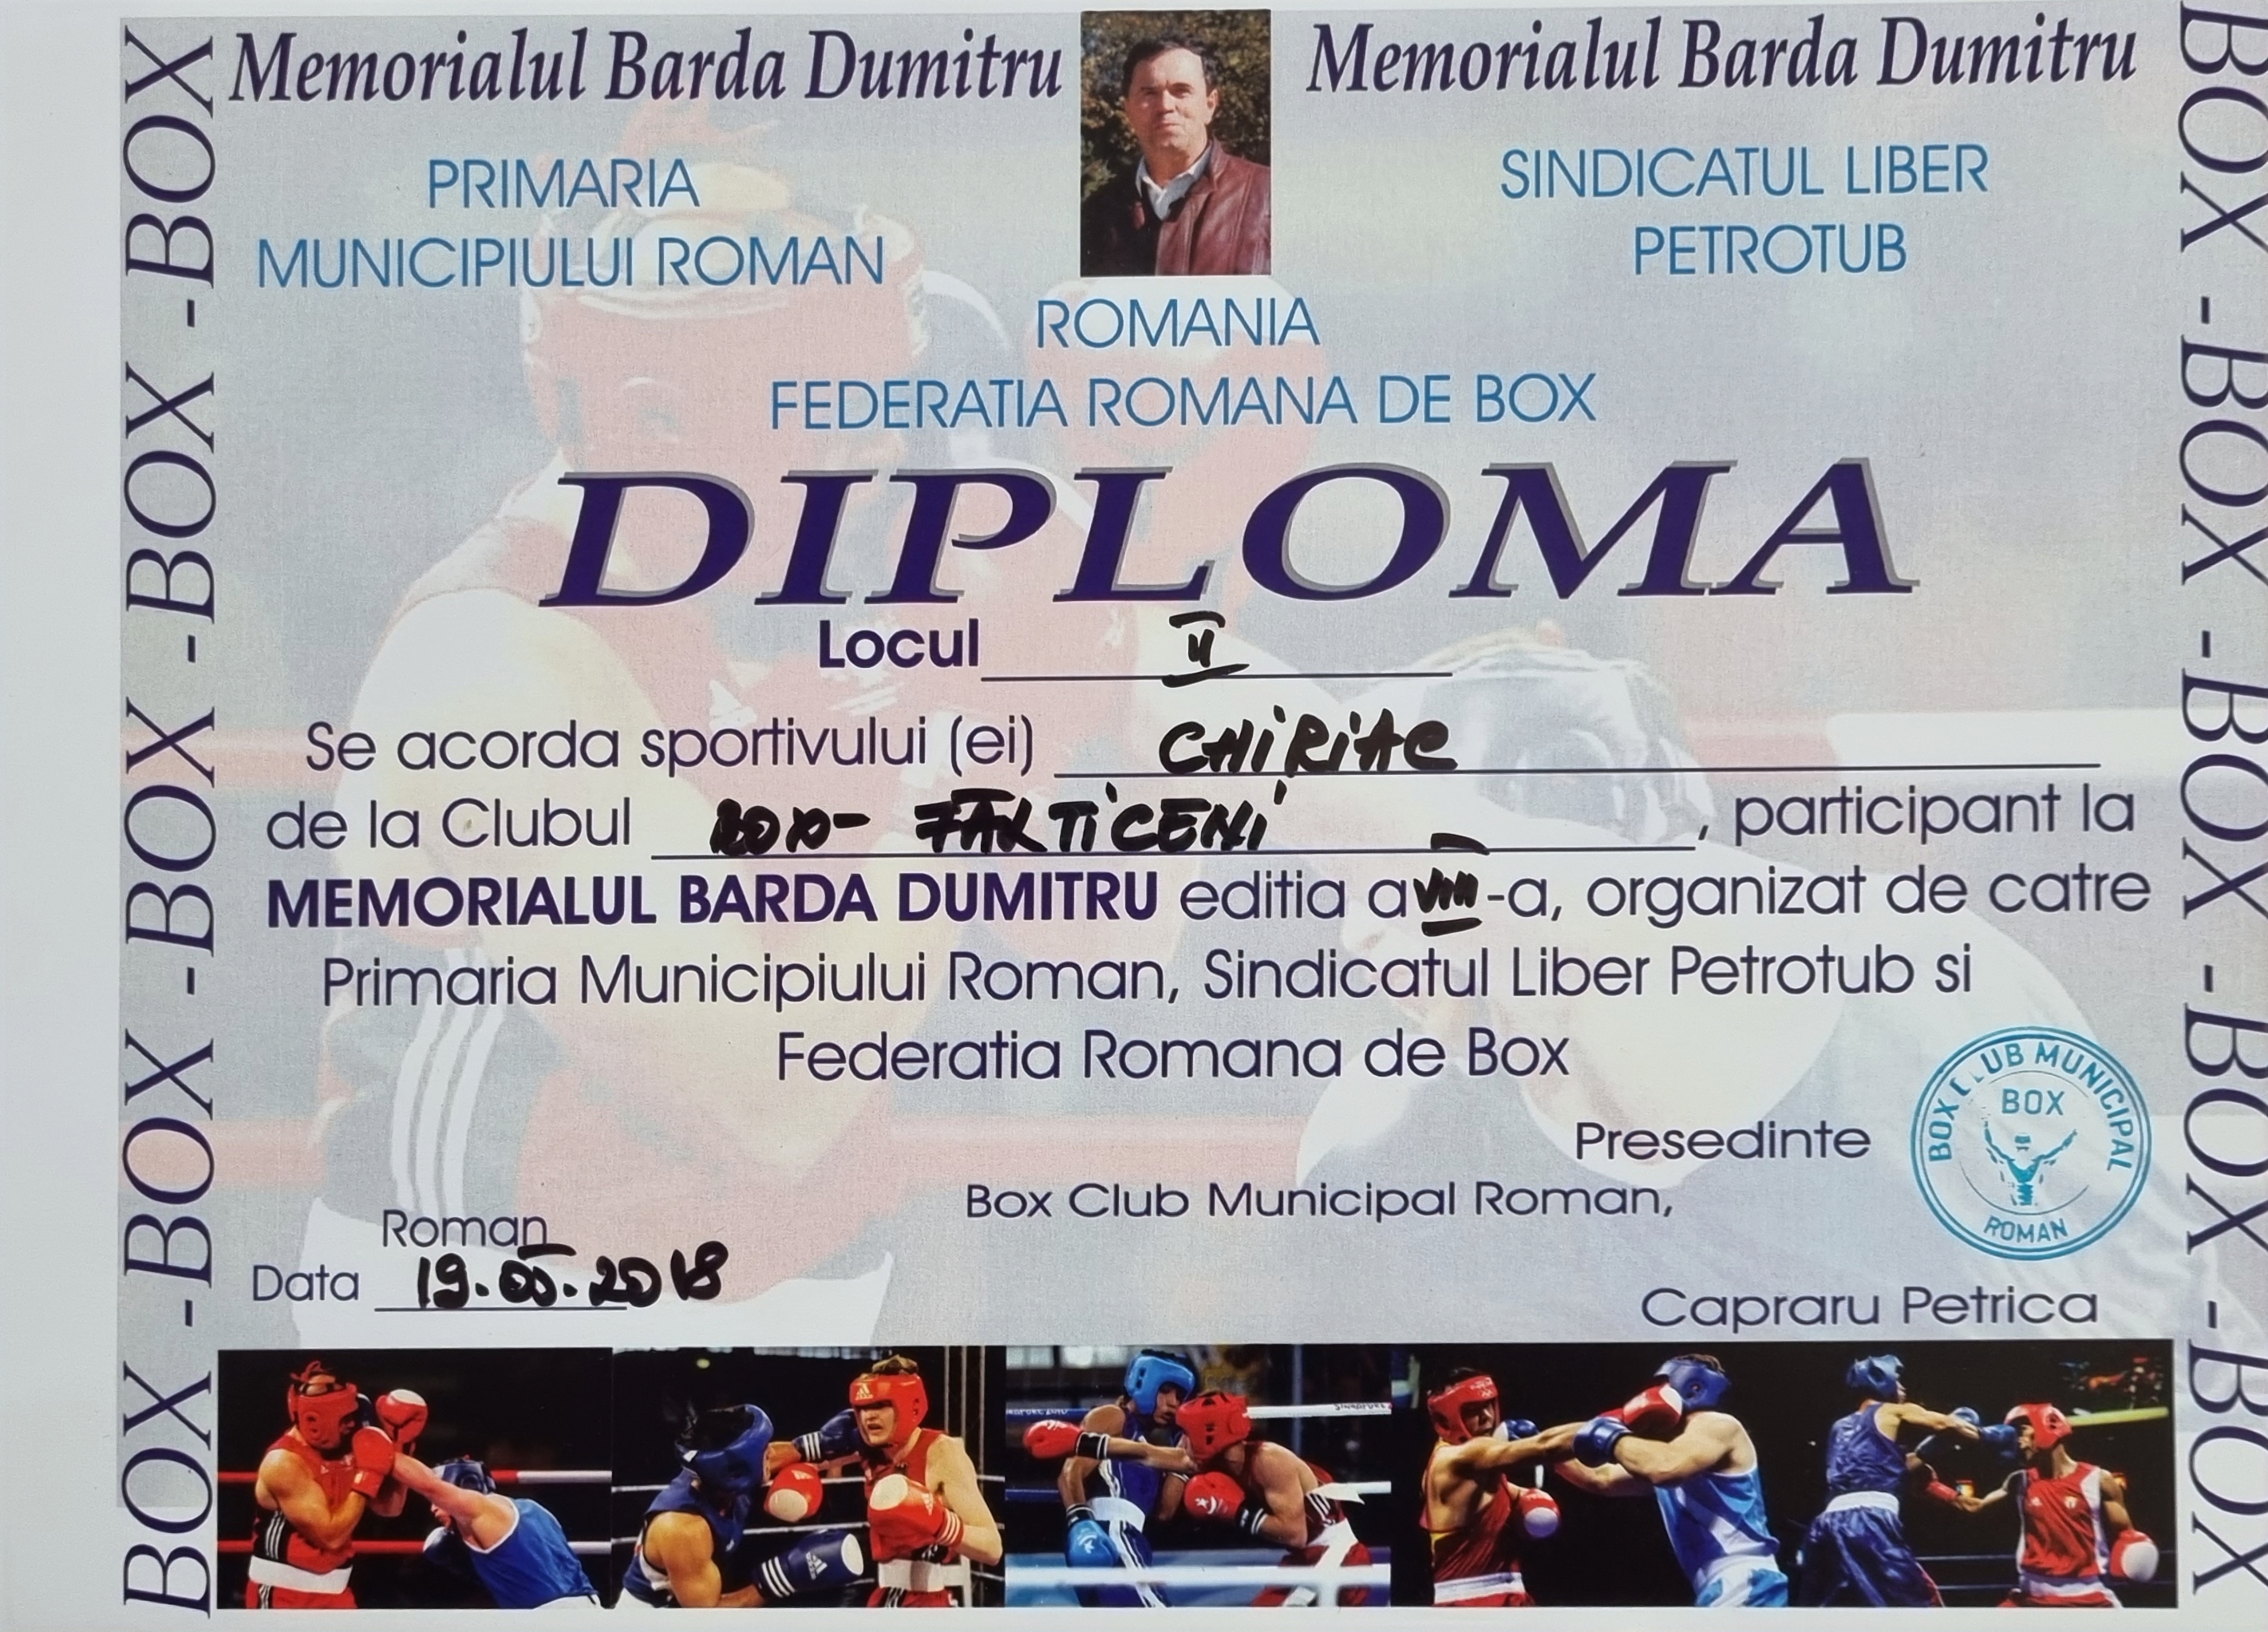 Memorialul Barda Dumitru Memorialul Barda Dumitru
PRIMARIA
MUNICIPIULUI ROMAN
SINDICATUL LIBER
PETROTUB
ROMANIA
FEDERATIA ROMANA DE BOX
DIPLOMA
Locul II
Se acorda sportivului (ei) CHIRIAC
de la Clubul BOX- FĂLTICENI, participant la
MEMORIALUL BARDA DUMITRU editia a VIII-a, organizat de catre
Primaria Municipiului Roman, Sindicatul Liber Petrotub si
Federatia Romana de Box
Presedinte
Box Club Municipal Roman,
BOX CLUB MUNICIPAL
BOX
ROMAN
Roman
Data 19.05.2018
Capraru Petrica
BOX -BOX -BOX -BOX -BOX
BOX -BOX -BOX -BOX -BOX